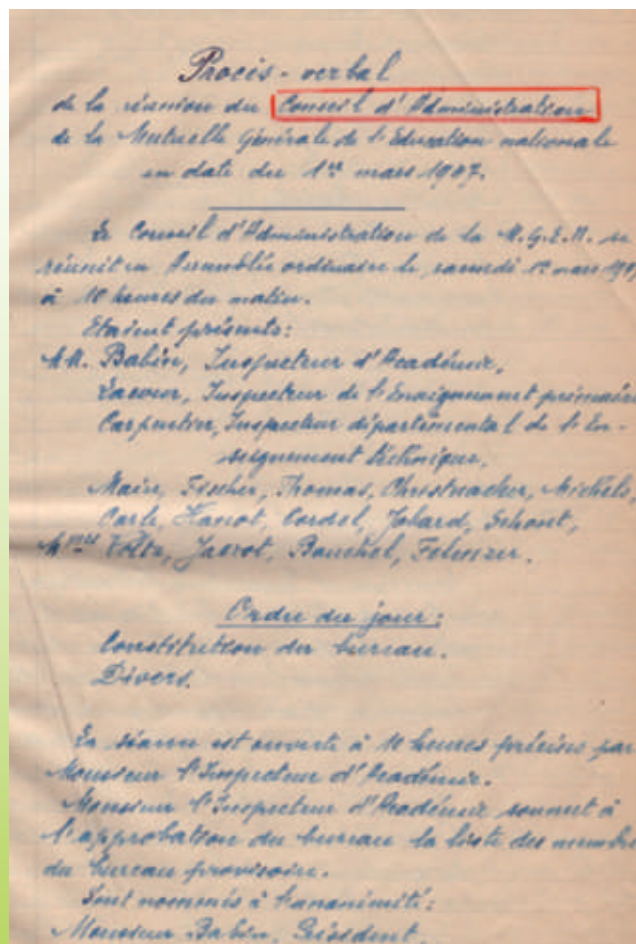 Procès-verbal
de la réunion du Conseil d'Administration
de la Mutuelle Générale de l'Education nationale
en date du 1er mars 1947.
Le Conseil d'Administration de la M.G.E.N. se
réunit en Assemblée ordinaire le samedi 1er mars 194
à 10 heures du matin.
Etaient présents:
MM. Babin, Inspecteur d'Académie,
Inspecteur de l'Enseignement primaire
Carpentier, Inspecteur départemental de l'En-
seignement technique,
Main, Fischer, Thomas, Christnacher, Michels,
Carle, Hanot, Cordel, Jobard, Schont,
Mmes Voltz, Jacrot, Bouchel,
Ordre du jour:
Constitution du bureau.
Divers.
La séance est ouverte à 10 heures précises par
Monsieur l'Inspecteur d'Académie.
Monsieur l'Inspecteur d'Académie soumet à
l'approbation du bureau la liste des membre
du bureau provisoire.
Sont nommés à l'unanimité:
Monsieur Babin, Président